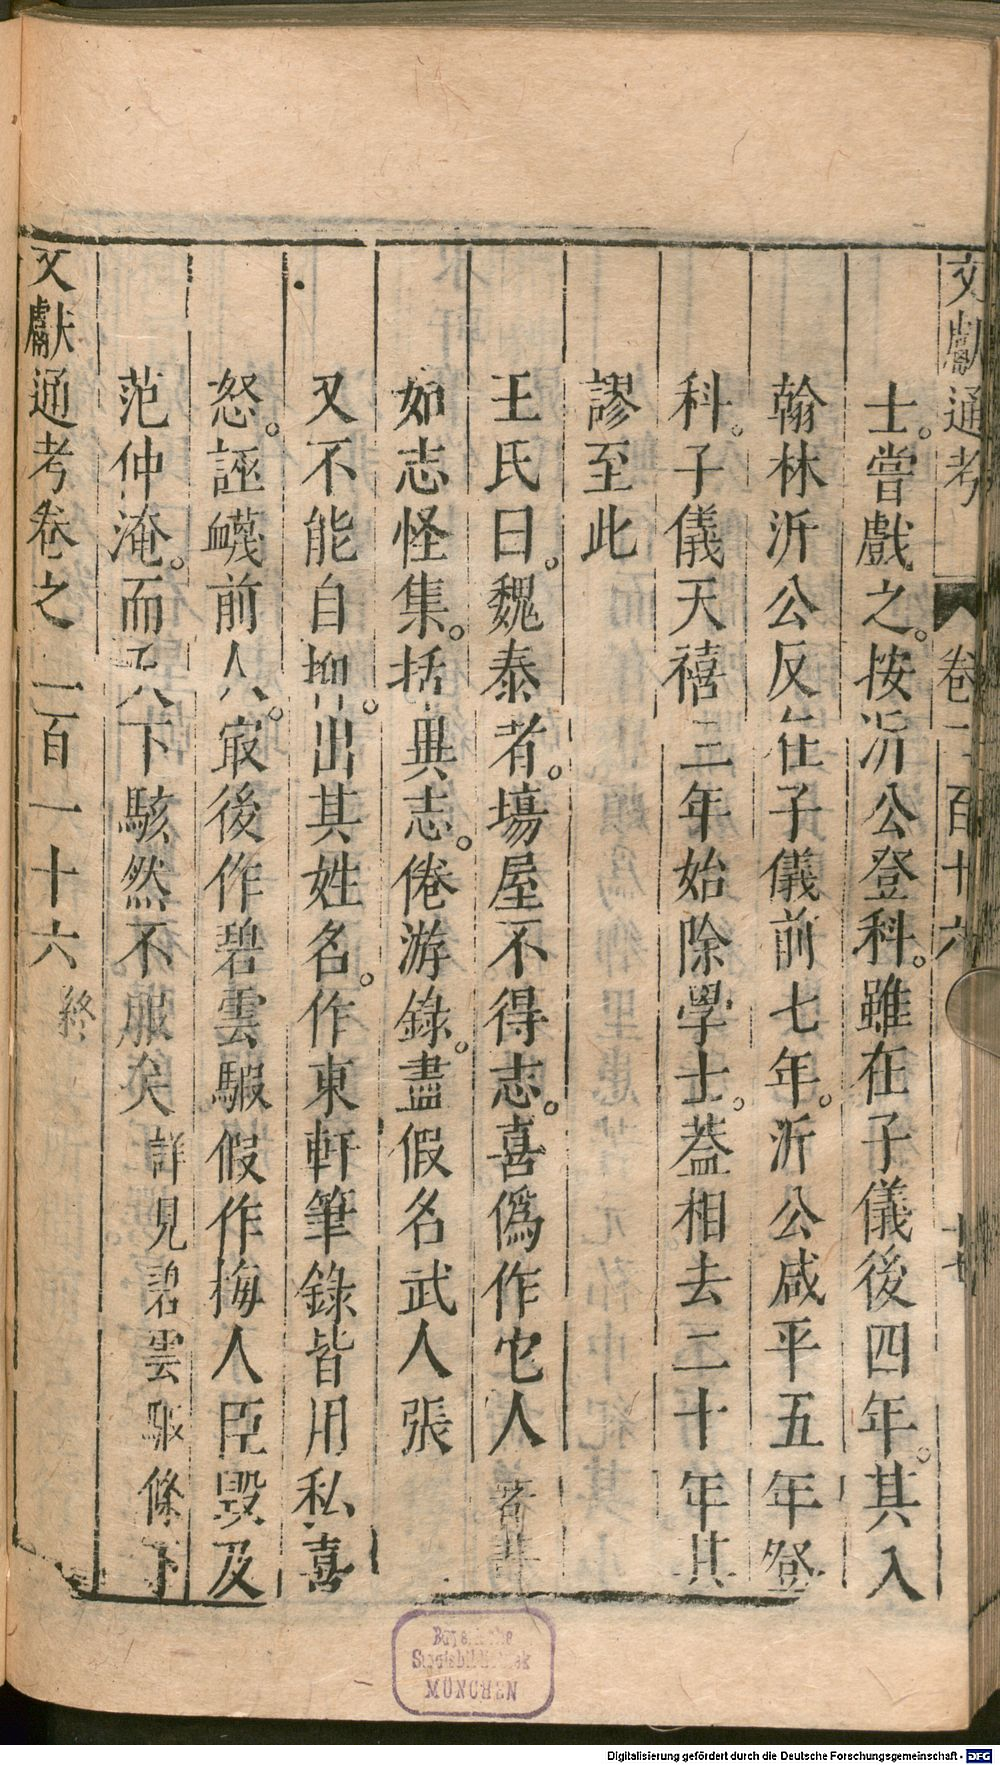 文獻通考 卷二百十六 十七
士。嘗戲之。按沂公登科。雖在子儀後四年。其入
翰林沂公反在子儀前七年。沂公咸平五年登
科。子儀天禧三年始除學士。葢相去二十年其
謬至此
王氏曰。魏泰者。塲屋不得志。喜僞作它人著書
如志怪集。括異志。倦游錄。盡假名武人張
又不能自抑。出其姓名。作東軒筆錄皆用私喜
怒。誣衊前人。㝡後作碧雲騢假作梅人臣毀及
范仲淹。而天下駭然不服矣詳見碧雲騢條下
文獻通考卷之二百一十六 終
Bayerische
Staatsbibliothek
MÜNCHEN
Digitalisierung gefördert durch die Deutsche Forschungsgemeinschaft - DFG